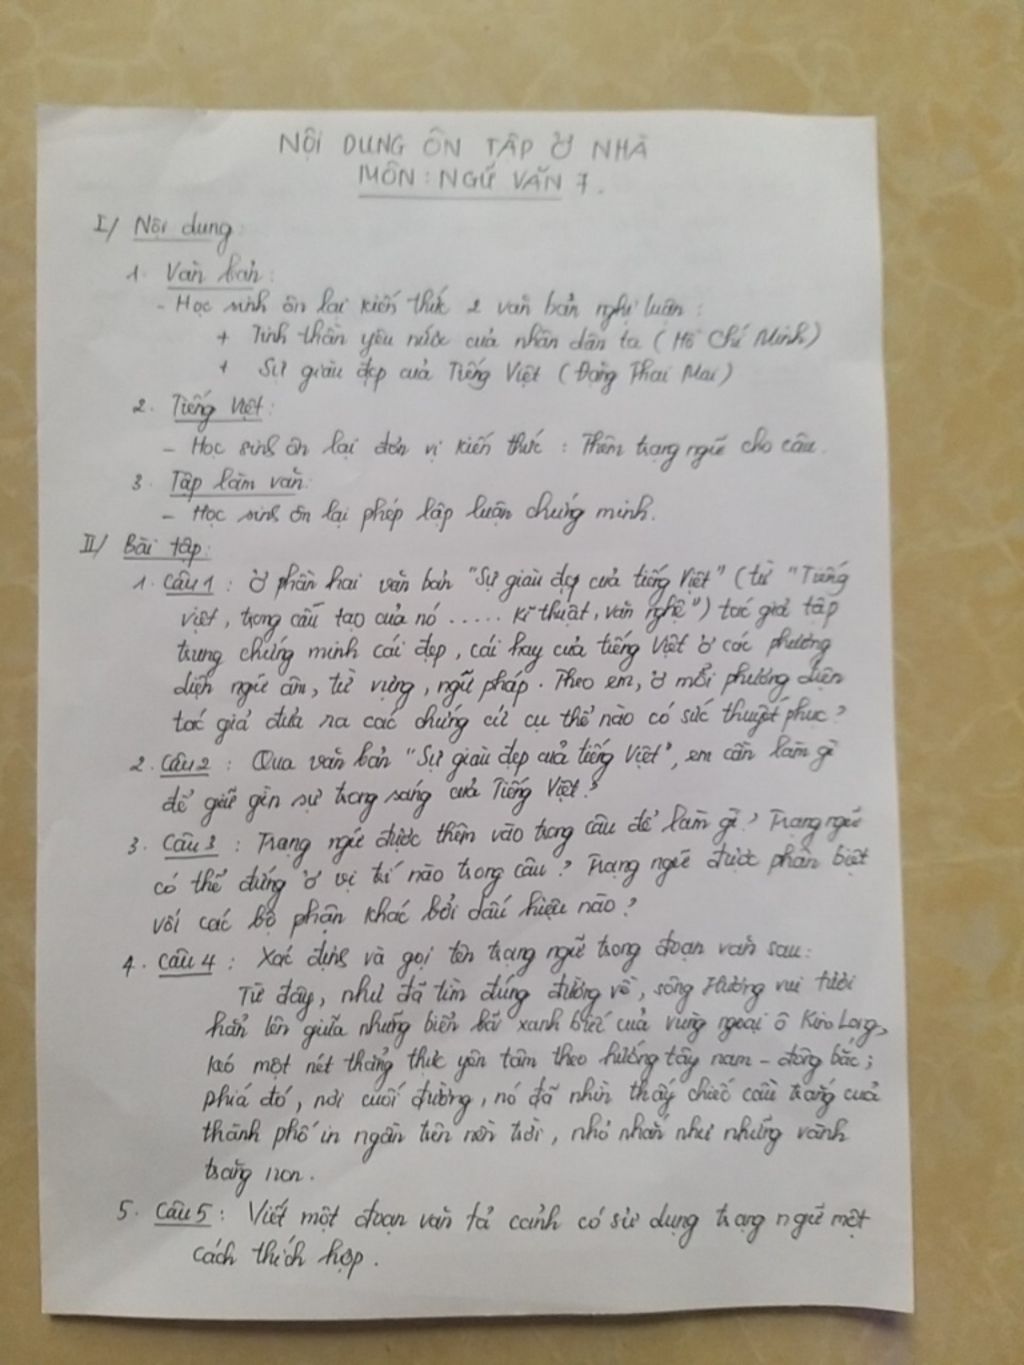 NỘI DUNG ÔN TẬP Ở NHÀ
MÔN: NGỮ VĂN 7.
I/ Nội dung:
1. Văn bản:
- Học sinh ôn lại kiến thức 2 văn bản nghị luận:
+ Tinh thần yêu nước của nhân dân ta (Hồ Chí Minh)
+ Sự giàu đẹp của Tiếng Việt (Đặng Thai Mai)
2. Tiếng Việt:
- Học sinh ôn lại đơn vị kiến thức: Thêm trạng ngữ cho câu.
3. Tập làm văn:
- Học sinh ôn lại phép lập luận chứng minh.
II/ Bài tập:
1. Câu 1: Ở phần hai văn bản "Sự giàu đẹp của tiếng Việt" (từ "Tiếng
việt, trong cấu tạo của nó ...... kĩ thuật, văn nghệ") tác giả tập
trung chứng minh cái đẹp, cái hay của tiếng Việt ở các phương
diện ngữ âm, từ vựng, ngữ pháp. Theo em, ở mỗi phương diện
tác giả đưa ra các chứng cứ cụ thể nào có sức thuyết phục?
2. Câu 2: Qua văn bản "Sự giàu đẹp của tiếng Việt", em cần làm gì
để giữ gìn sự trong sáng của Tiếng Việt?
3. Câu 3: Trạng ngữ được thêm vào trong câu để làm gì? Trạng ngữ
có thể đứng ở vị trí nào trong câu? Trạng ngữ được phân biệt
với các bộ phận khác bởi dấu hiệu nào?
4. Câu 4: Xác định và gọi tên trạng ngữ trong đoạn văn sau:
Từ đây, như đã tìm đúng đường về, sông Hương vui tươi
hẳn lên giữa những biền bãi xanh biếc của vùng ngoại ô Kim Long,
kéo một nét thẳng thực yên tâm theo hướng tây nam - đông bắc;
phía đó, nơi cuối đường, nó đã nhìn thấy chiếc cầu trắng của
thành phố in ngần trên nền trời, nhỏ nhắn như những vành
trăng non.
5. Câu 5: Viết một đoạn văn tả cảnh có sử dụng trạng ngữ một
cách thích hợp.